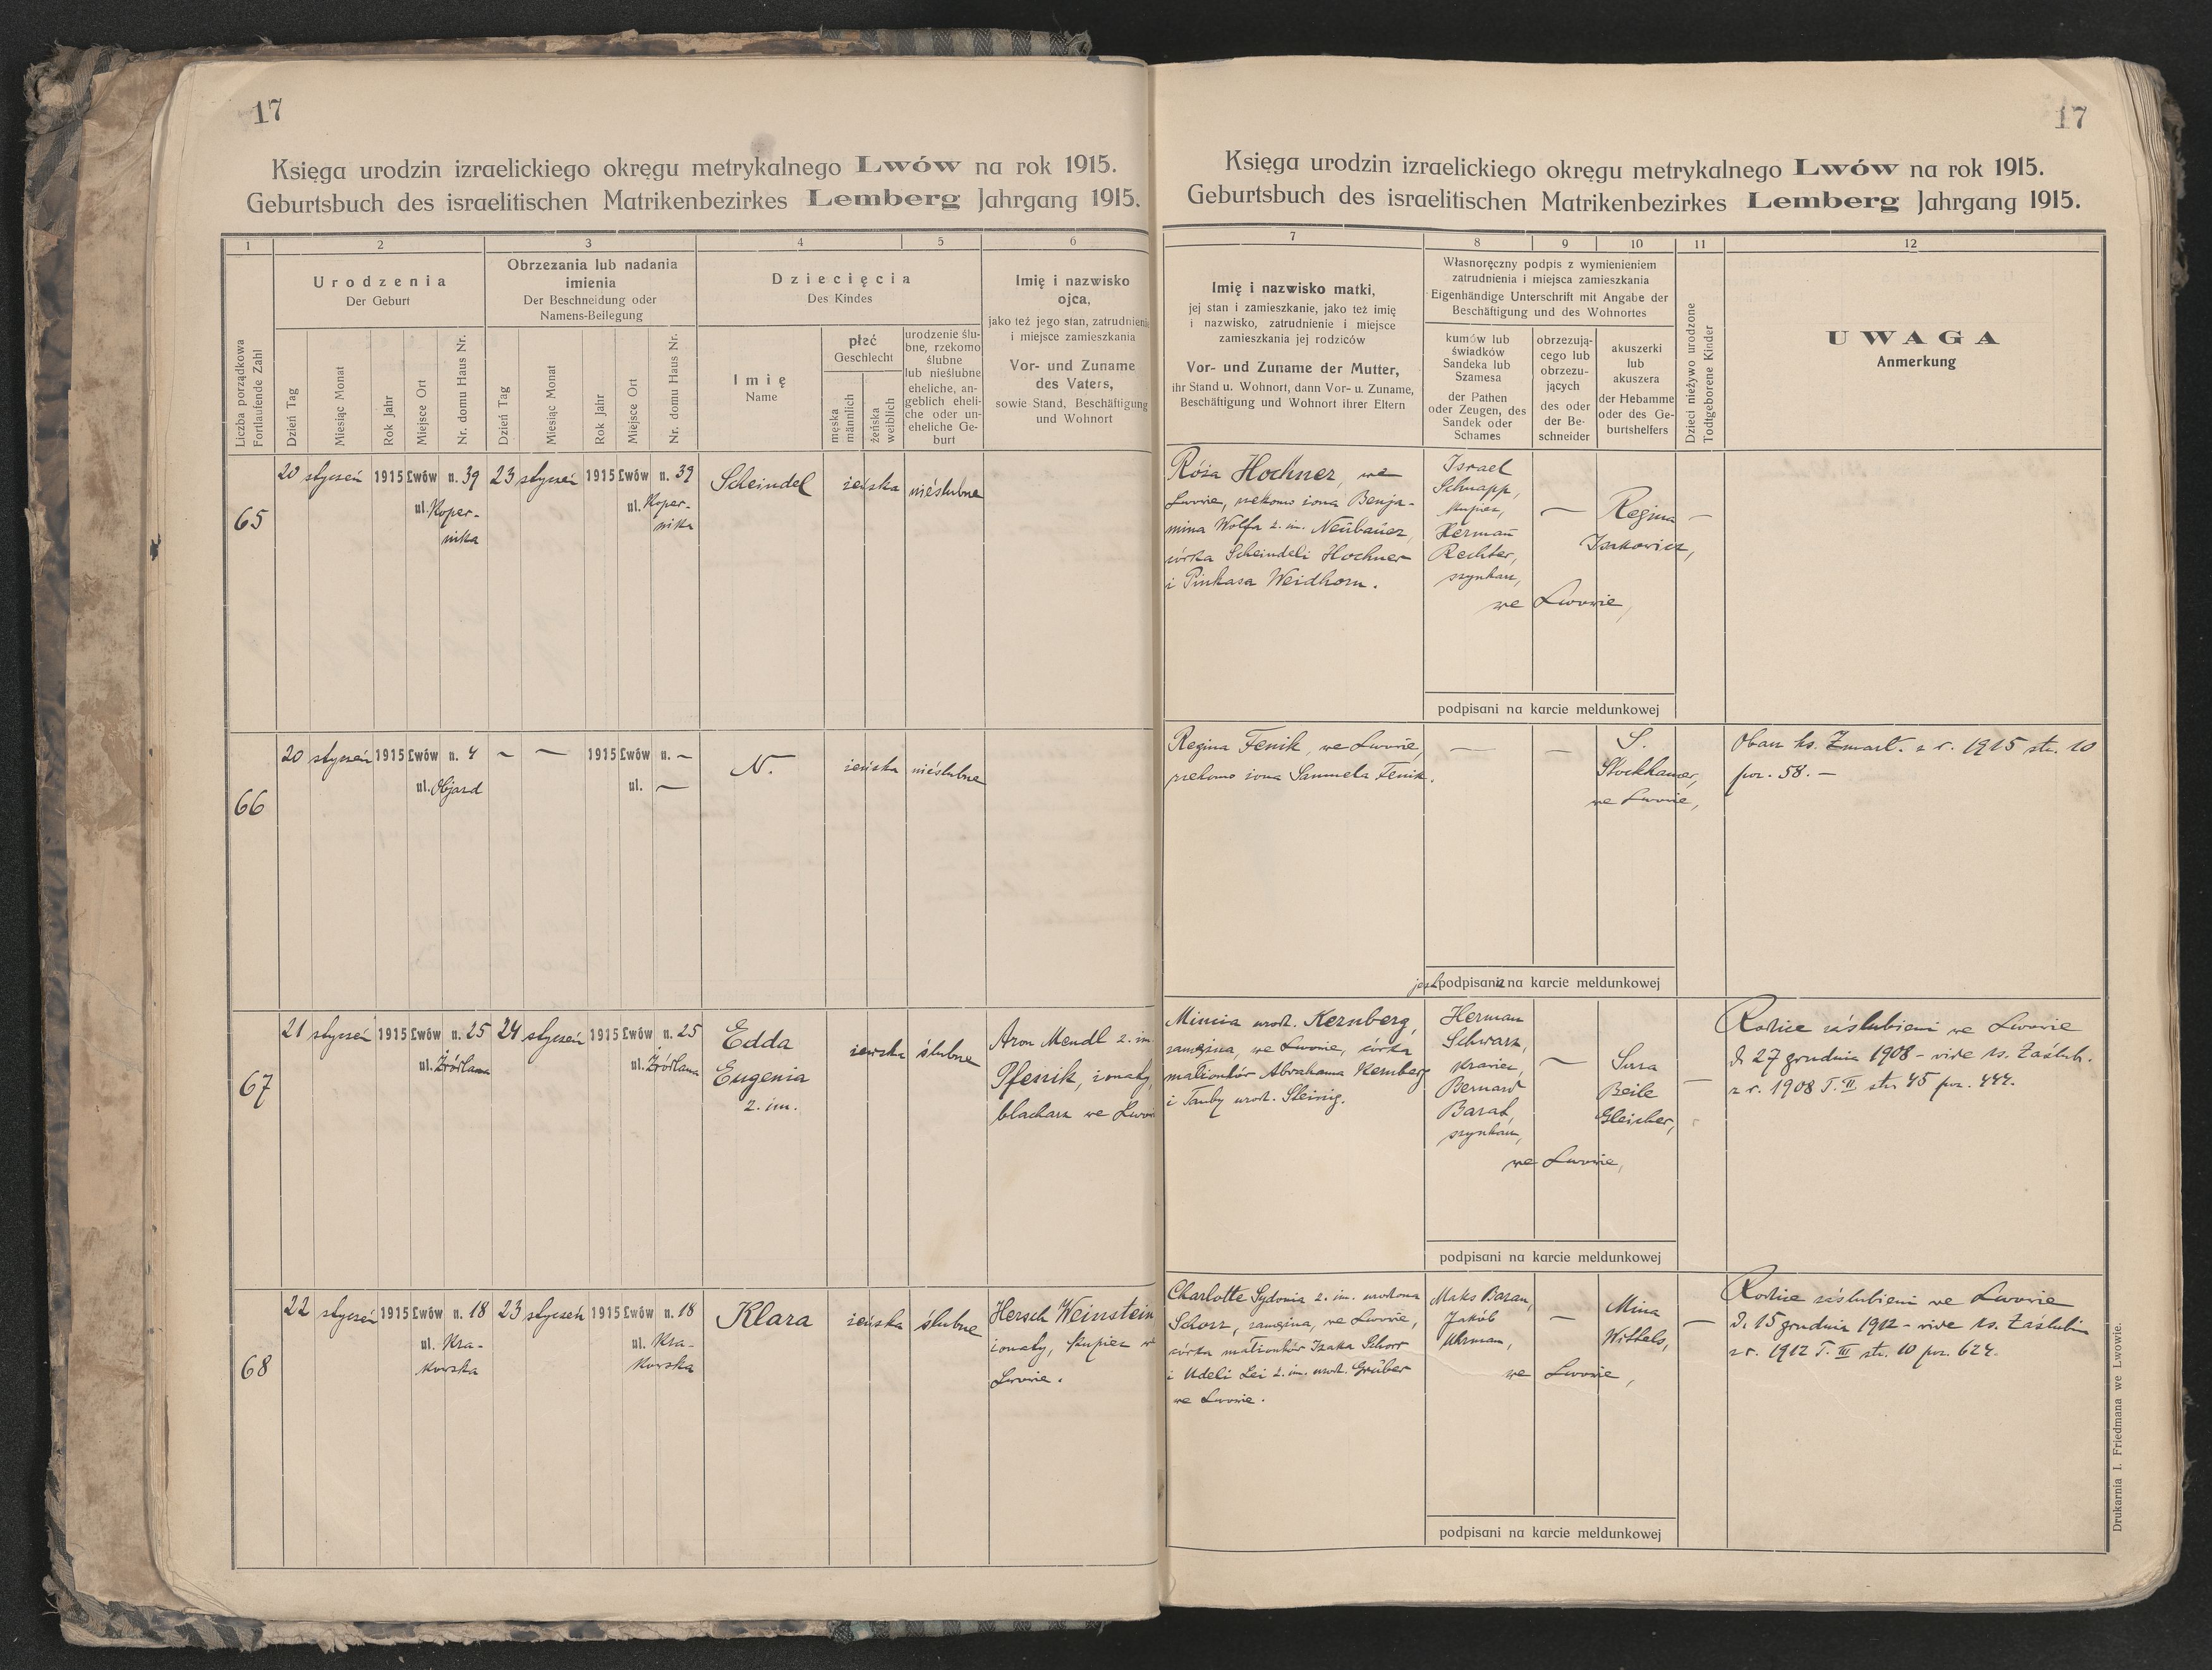 17
Księga urodzin izraelickiego okręgu metrykalnego Lwów na rok 1915.
Geburtsbuch des israelitischen Matrikenbezirkes Lemberg Jahrgang 1915.
1 2 3 4 5 6
Liczba porządkowa
Fortlaufende Zahl
Urodzenia
Der Geburt
Dzień Tag
Miesiąc Monat
Rok Jahr
Miejsce Ort
Nr. domu Haus Nr.
Obrzezania lub nadania
imienia
Der Beschneidung oder
Namens-Beilegung
Dzień Tag
Miesiąc Monat
Rok Jahr
Miejsce Ort
Nr. domu Haus Nr.
Dziecięcia
Des Kindes
Imię
Name
płeć
Geschlecht
męska
männlich
żeńska
weiblich
urodzenie ślu-
bne, rzekomo
ślubne
lub nieślubne
eheliche, an-
geblich eheli-
che oder un-
eheliche Ge-
burt
Imię i nazwisko
ojca,
jako też jego stan, zatrudnienie
i miejsce zamieszkania
Vor- und Zuname
des Vaters,
sowie Stand, Beschäftigung
und Wohnort
65
20 styczeń 1915 Lwów n. 39
ul. Koper-
nika
23 styczeń 1915 Lwów n. 39
ul. Koper-
nika
Scheindel
żeńska
nieślubne
66
20 styczeń 1915 Lwów n. 4
ul. Objazd
— — 1915 Lwów n. —
ul. —
N.
żeńska
nieślubne
67
21 styczeń 1915 Lwów n. 25
ul. Źródlana
24 styczeń 1915 Lwów n. 25
ul. Źródlana
Edda
Eugenia
2. im.
żeńska
ślubne
Aron Mendl 2. im.
Pfesrik, żonaty,
blacharz we Lwow
68
22 styczeń 1915 Lwów n. 18
ul. Kra-
kowska
23 styczeń 1915 Lwów n. 18
ul. Kra-
kowska
Klara
żeńska
ślubne
Hersch Weinstein
żonaty, kupiec w
Lwowie.
17
Księga urodzin izraelickiego okręgu metrykalnego Lwów na rok 1915.
Geburtsbuch des israelitischen Matrikenbezirkes Lemberg Jahrgang 1915.
7 8 9 10 11 12
Imię i nazwisko matki,
jej stan i zamieszkanie, jako też imię
i nazwisko, zatrudnienie i miejsce
zamieszkania jej rodziców
Vor- und Zuname der Mutter,
ihr Stand u. Wohnort, dann Vor- u. Zuname,
Beschäftigung und Wohnort ihrer Eltern
Własnoręczny podpis z wymienieniem
zatrudnienia i miejsca zamieszkania
Eigenhändige Unterschrift mit Angabe der
Beschäftigung und des Wohnortes
kumów lub
świadków
Sandeka lub
Szamesa
der Pathen
oder Zeugen, des
Sandek oder
Schames
obrzezują-
cego lub
obrzezu-
jących
des oder
der Be-
schneider
akuszerki
lub
akuszera
der Hebamme
oder des Ge-
burtshelfers
Dzieci nieżywo urodzone
Todtgeborene Kinder
UWAGA
Anmerkung
Róża Hochner, we
Lwowie, rzekomo żona Benja-
mina Wolfa 2. im. Neubauer,
córka Scheindeli Hochner
i Pinkasa Weidhorn.
Israel
Schnapp,
kupiec,
Herman
Rechter,
szynkarz,
—
Regina
Izakowicz,
—
we Lwowie,
podpisani na karcie meldunkowej
Regina Fenik, we Lwowie,
rzekomo żona Samuela Fenik.
—
—
S.
Stockhamer,
we Lwowie,
Obacz ks. Zmarł. z r. 1915 str. 10
poz. 58. —
jest podpisana na karcie meldunkowej
Mincia urodz. Kernberg,
zamężna, we Lwowie, córka
małżonków Abrahama Kernberg
i Tauby urodz. Steinig.
Herman
Schwarz,
krawiec,
Bernard
Barat,
szynkarz,
—
Sura
Beile
Gleicher,
—
we Lwowie,
Rodzice zaślubieni we Lwowie
d. 27 grudnia 1908 - vide ks. Zaślub.
z r. 1908 T. II str. 45 poz. 444.
podpisani na karcie meldunkowej
Charlotte Sydonia 2. im. urodzona
Schorr, zamężna, we Lwowie,
córka małżonków Izaka Schorr
i Udeli Lei 2. im. urodz. Grüber
we Lwowie.
Maks Baran,
Jakób
Uhrman,
—
Mina
Wittels,
—
we Lwowie,
Rodzice zaślubieni we Lwowie
d. 15 grudnia 1912 - vide ks. Zaślubin
z r. 1912 T. III str. 10 poz. 624.
podpisani na karcie meldunkowej
Drukarnia I. Friedmana we Lwowie.